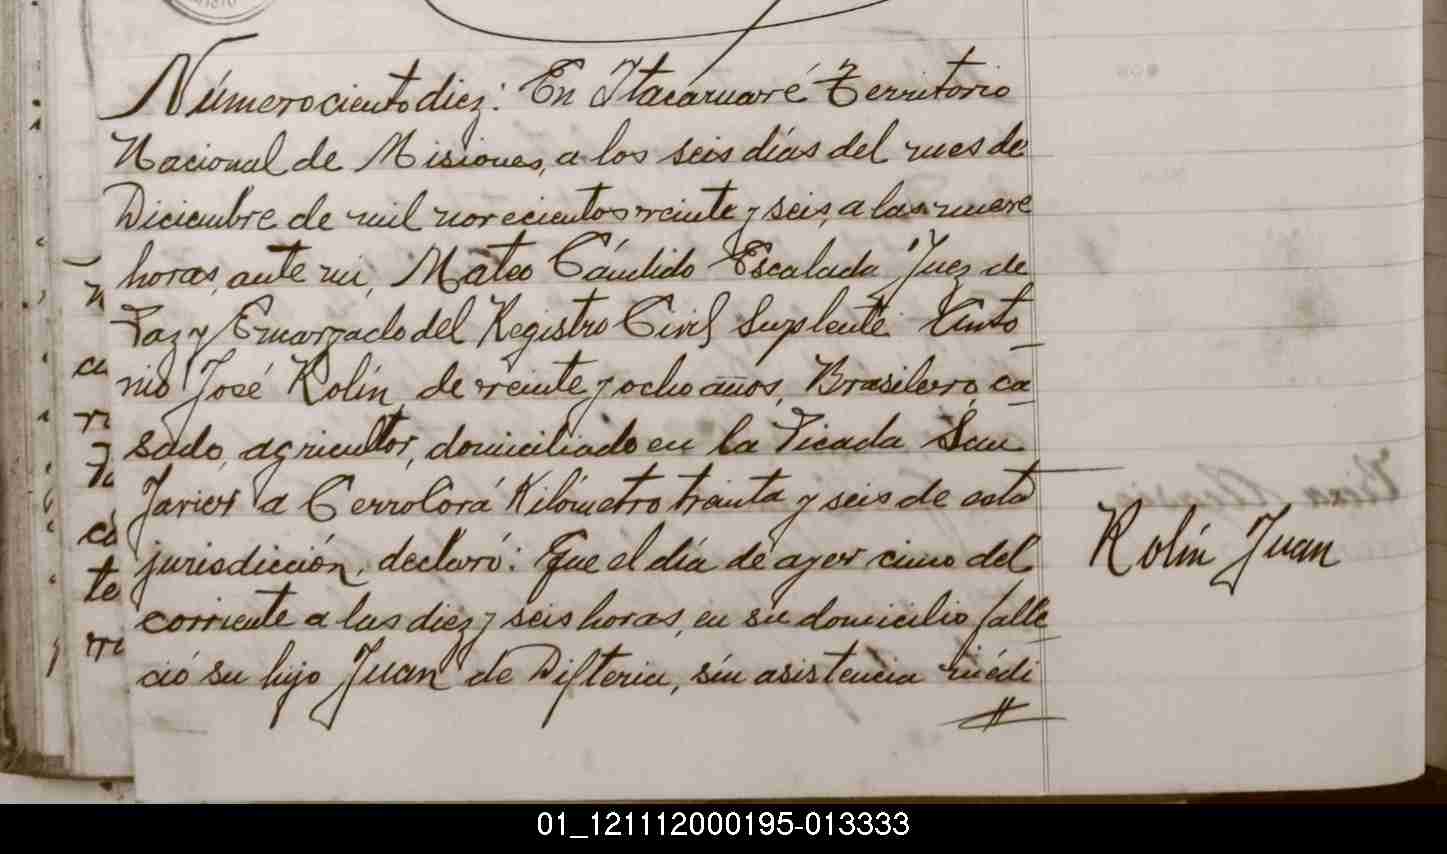 Número ciento diez: En Itacaruaré Territorio
Nacional de Misiones, a los seis días del mes de
Diciembre de mil novecientos veinte y seis, a las nueve
horas, ante mi, Mateo Cándido Escalada Juez de
Paz y Encargado del Registro Civil Suplente Anto
nio José Rolín de veinte y ocho años, Brasilero, ca
sado, agricultor, domiciliado en la Picada San
Javier a Cerro Corá Kilómetro treinta y seis de esta
jurisdicción, declaró: Que el día de ayer cinco del
corriente a las diez y seis horas, en su domicilio falle
ció su hijo Juan de Difteria, sin asistencia médi
Rolín Juan
01_121112000195-013333